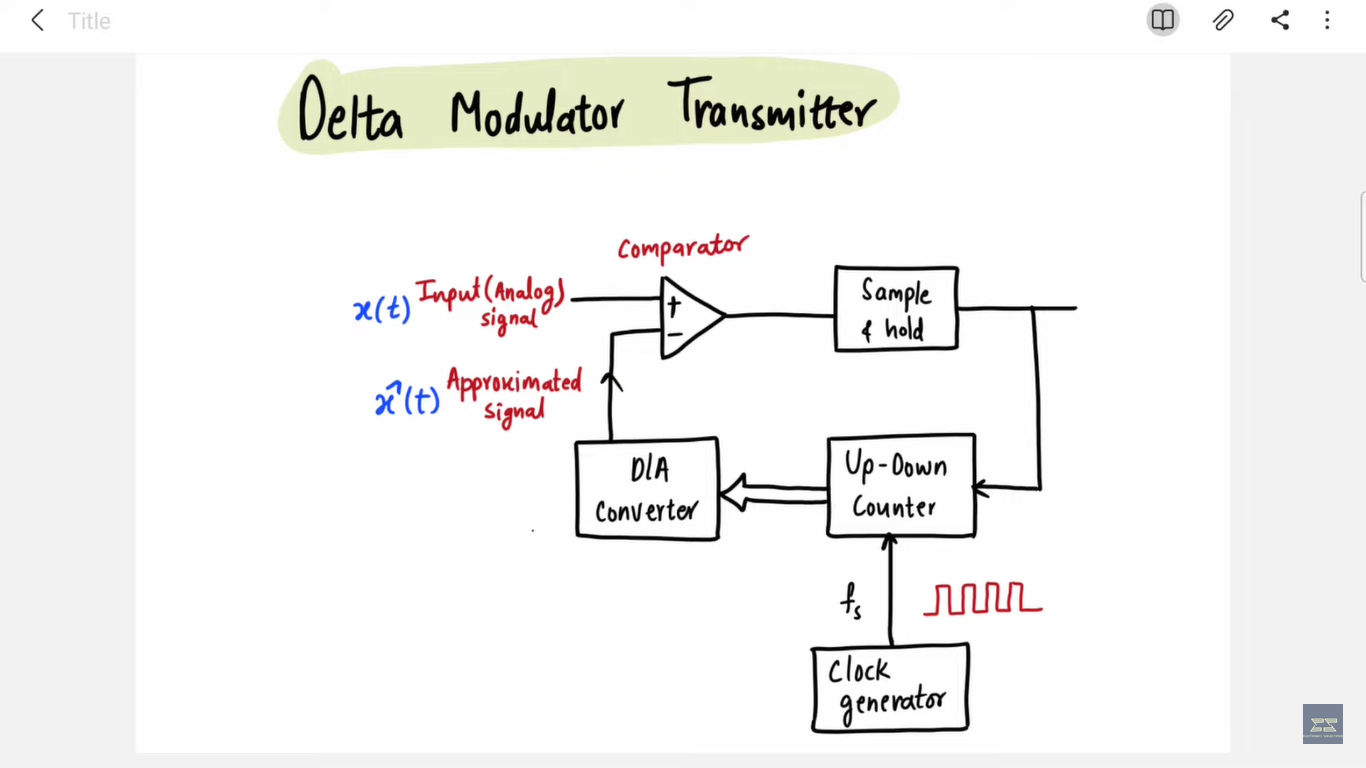 Title
Delta Modulator Transmitter
Comparator
x(t) Input (Analog)
signal
+
-
Sample
& hold
x̂(t) Approximated
signal
D/A
Converter
Up-Down
Counter
fs
Clock
generator